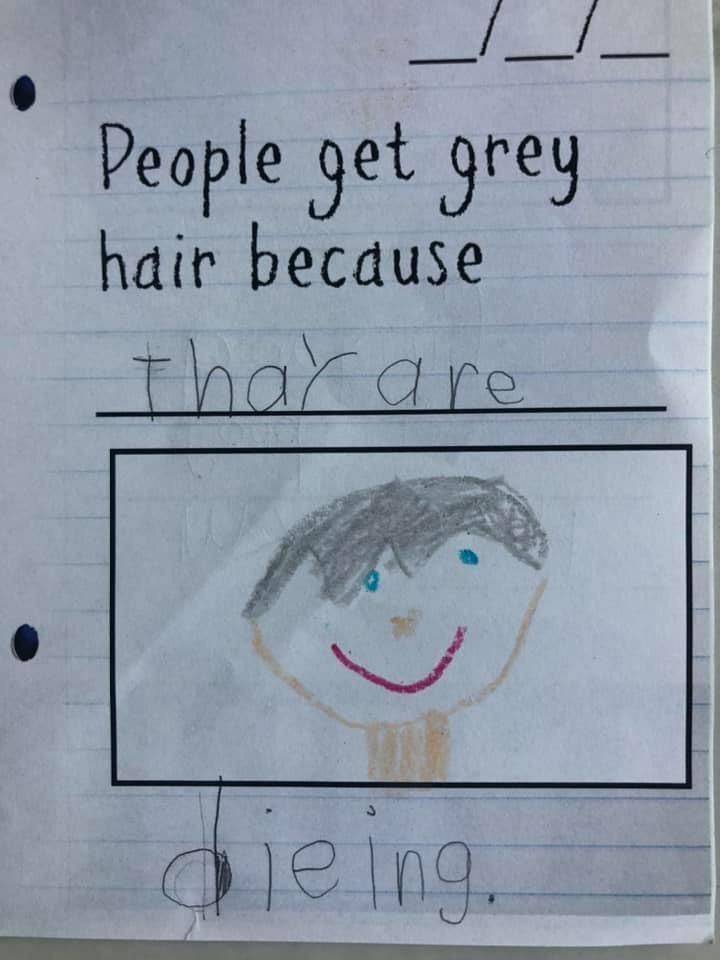 _/_/_
People get grey
hair because
thay are
dieing.